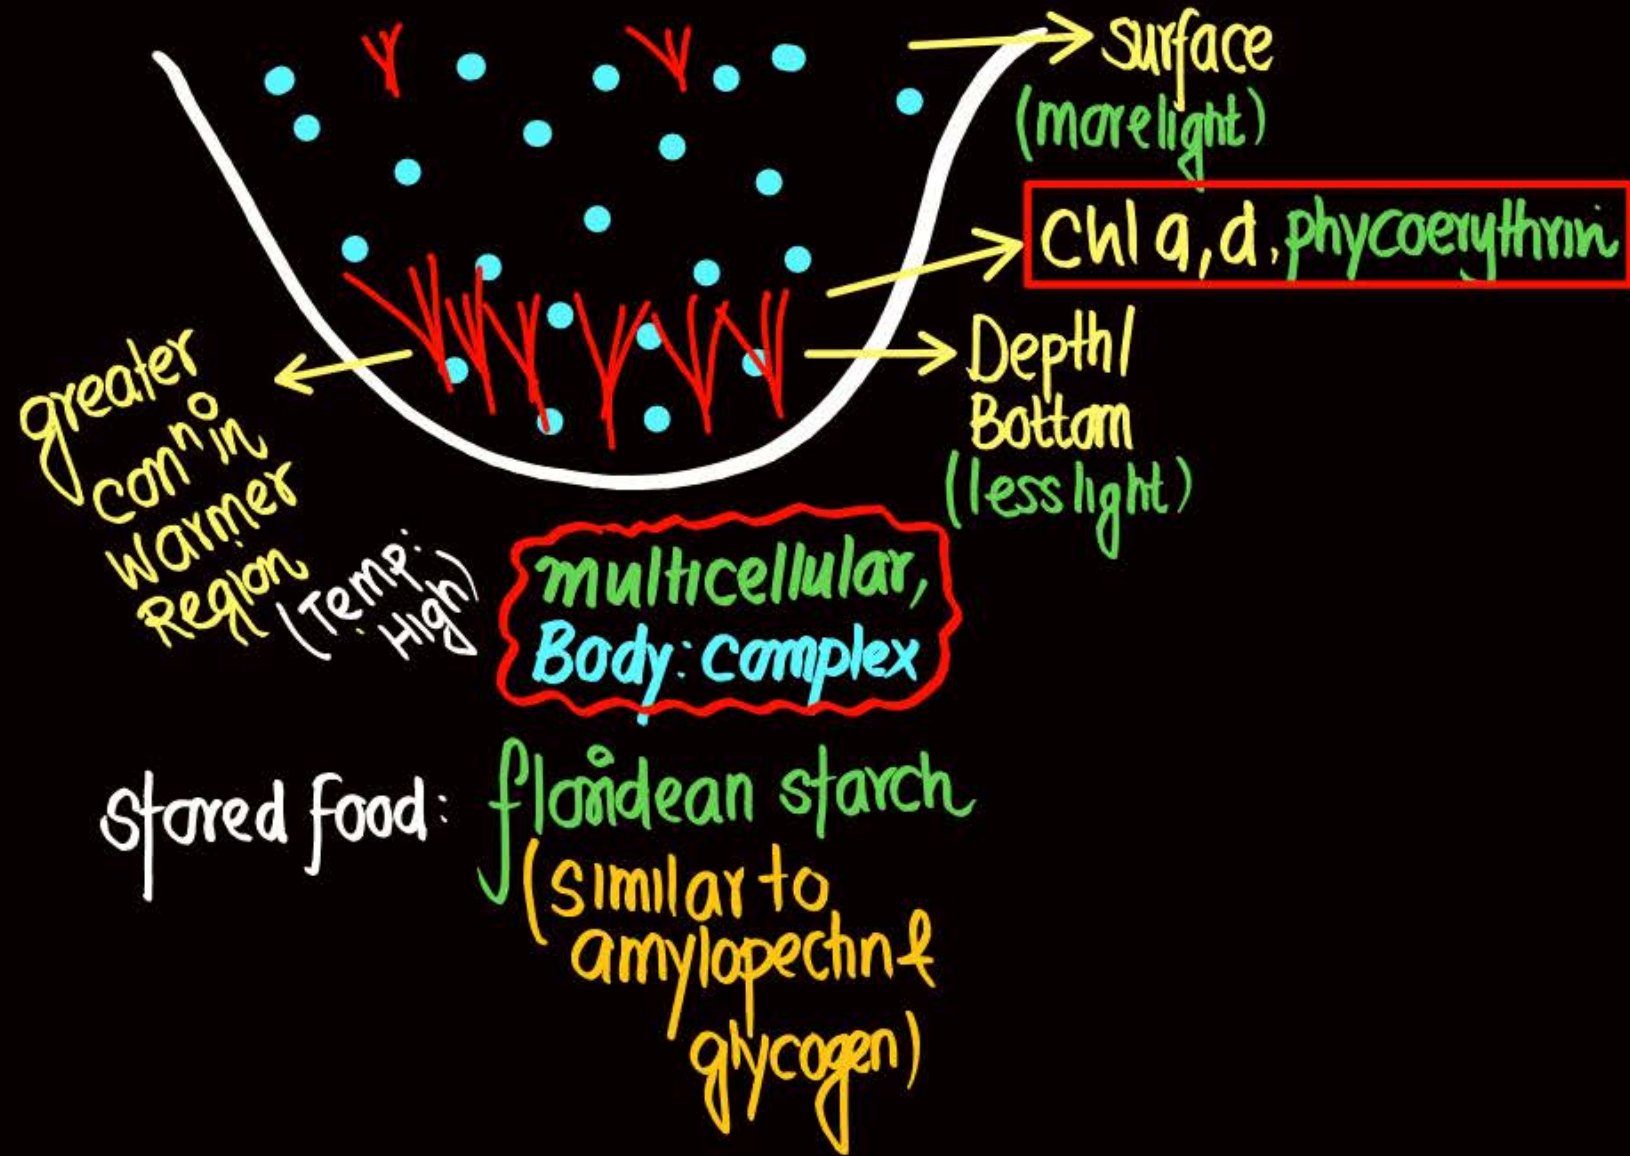 surface
(more light)
Chl a, d, phycoerythrin
Depth/
Bottom
(less light)
greater
conⁿ in
warmer
Region
(Temp:
High)
multicellular,
Body: complex
stored food: floridean starch
(similar to
amylopectin &
glycogen)